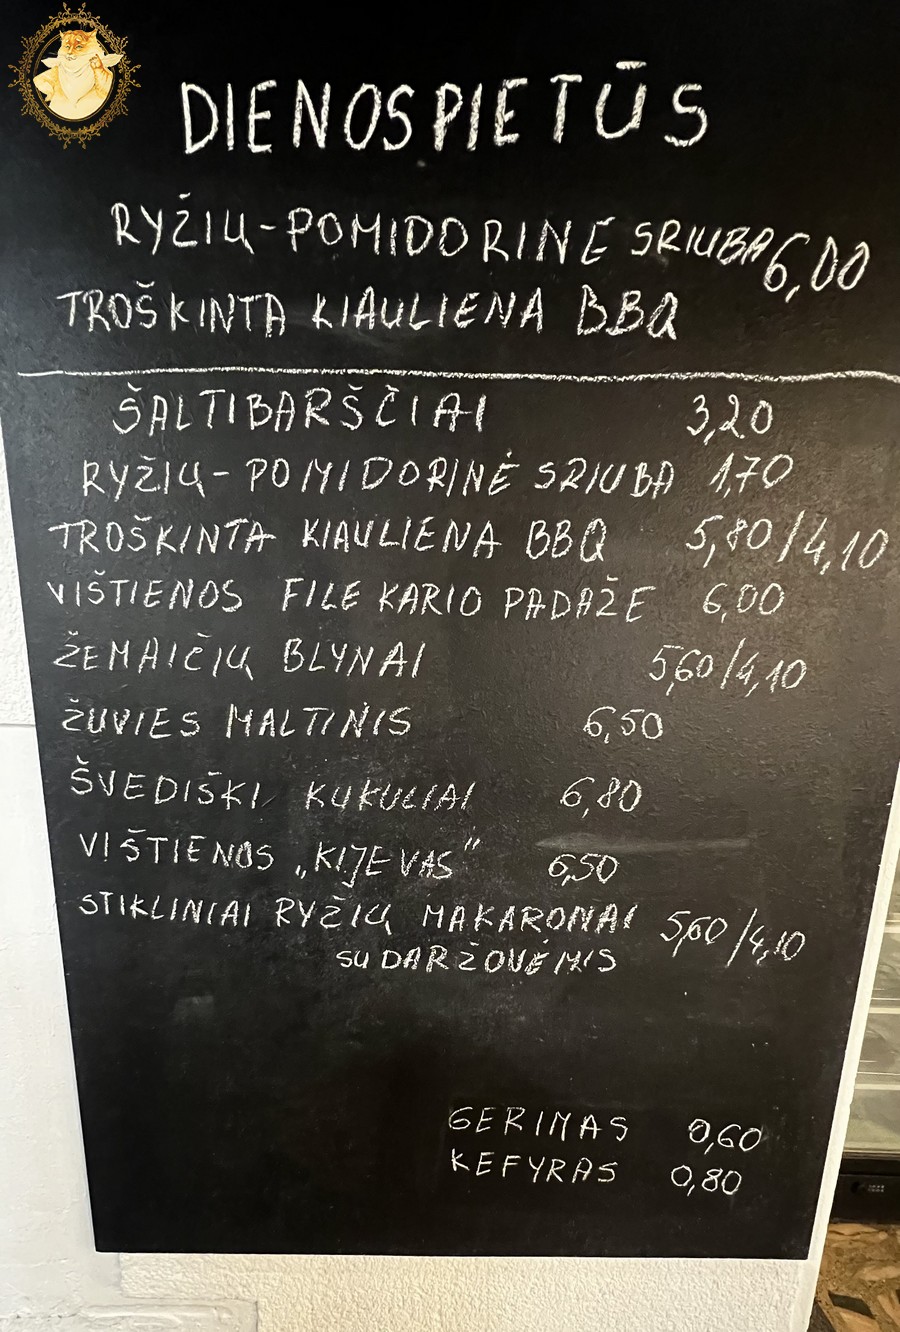 DIENOS PIETŪS
RYŽIŲ-POMIDORINĖ SRIUBA 6,00
TROŠKINTA KIAULIENA BBQ
ŠALTIBARŠČIAI 3,20
RYŽIŲ-POMIDORINĖ SRIUBA 1,70
TROŠKINTA KIAULIENA BBQ 5,80/4,10
VIŠTIENOS FILE KARIO PADAŽE 6,00
ŽEMAIČIŲ BLYNAI 5,60/4,10
ŽUVIES MALTINIS 6,50
ŠVEDIŠKI KUKULIAI 6,80
VIŠTIENOS „KIJEVAS" 6,50
STIKLINIAI RYŽIŲ MAKARONAI 5,60/4,10
SU DARŽOVĖMIS
GERIMAS 0,60
KEFYRAS 0,80